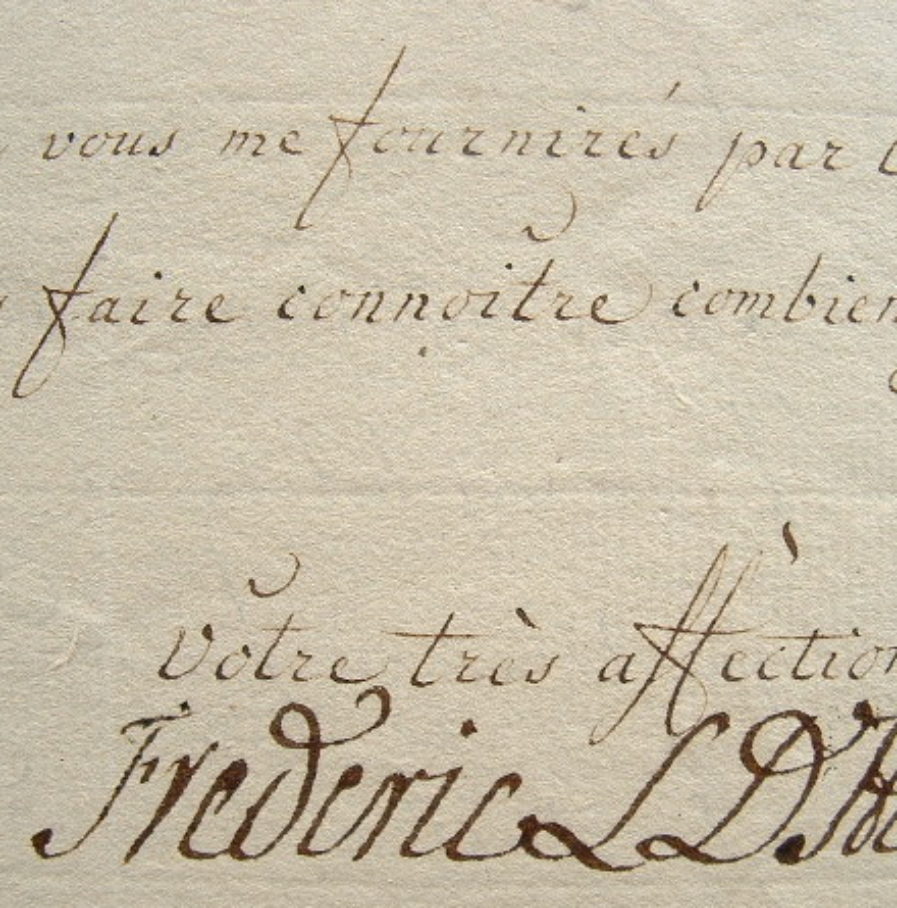 vous me fournirés par
faire connoître combien
Vôtre très affèction
Frederic L D. H